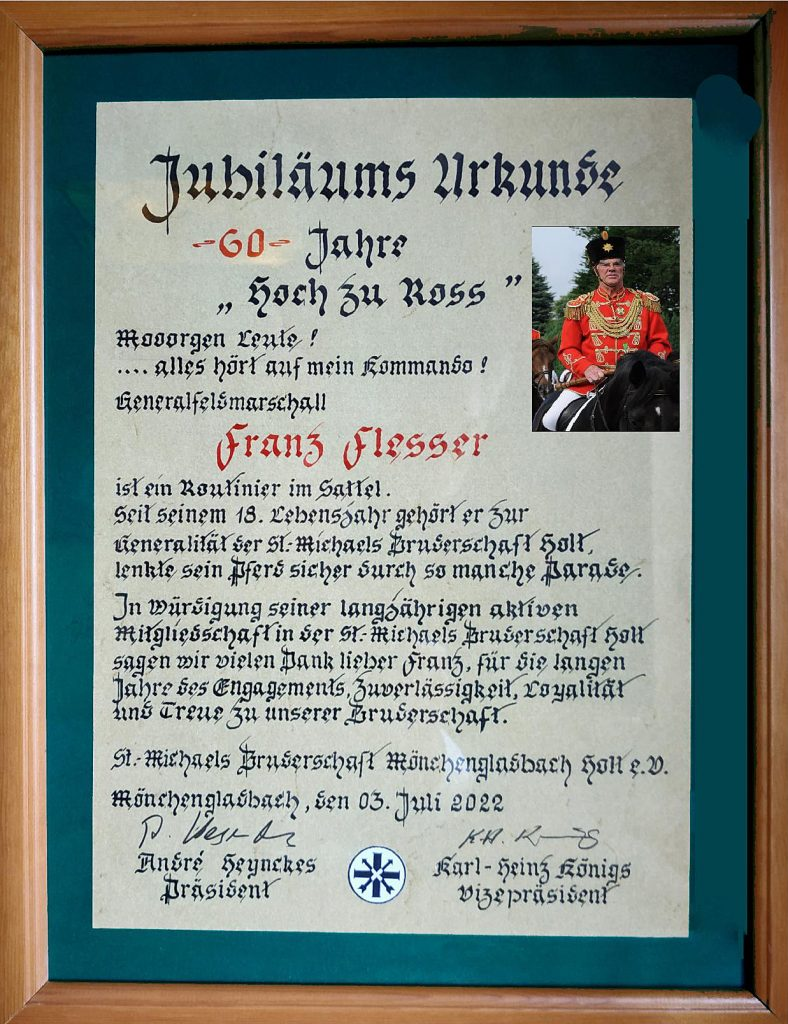 Jubiläums Urkunde
-60- Jahre
„Hoch zu Ross"
Mooorgen Leute!
.... alles hört auf mein Kommando!
Generalfeldmarschall
Franz Flesser
ist ein Routinier im Sattel.
Seit seinem 18. Lebensjahr gehört er zur
Generalität der St.-Michaels Bruderschaft Holt,
lenkte sein Pferd sicher durch so manche Parade.
In Würdigung seiner langjährigen aktiven
Mitgliedschaft in der St.-Michaels Bruderschaft Holt
sagen wir vielen Dank lieber Franz, für die langen
Jahre des Engagements, Zuverlässigkeit, Loyalität
und Treue zu unserer Bruderschaft.
St.-Michaels Bruderschaft Mönchengladbach Holt e.V.
Mönchengladbach, den 03. Juli 2022
André Heynckes
Präsident
Karl-Heinz Königs
Vizepräsident